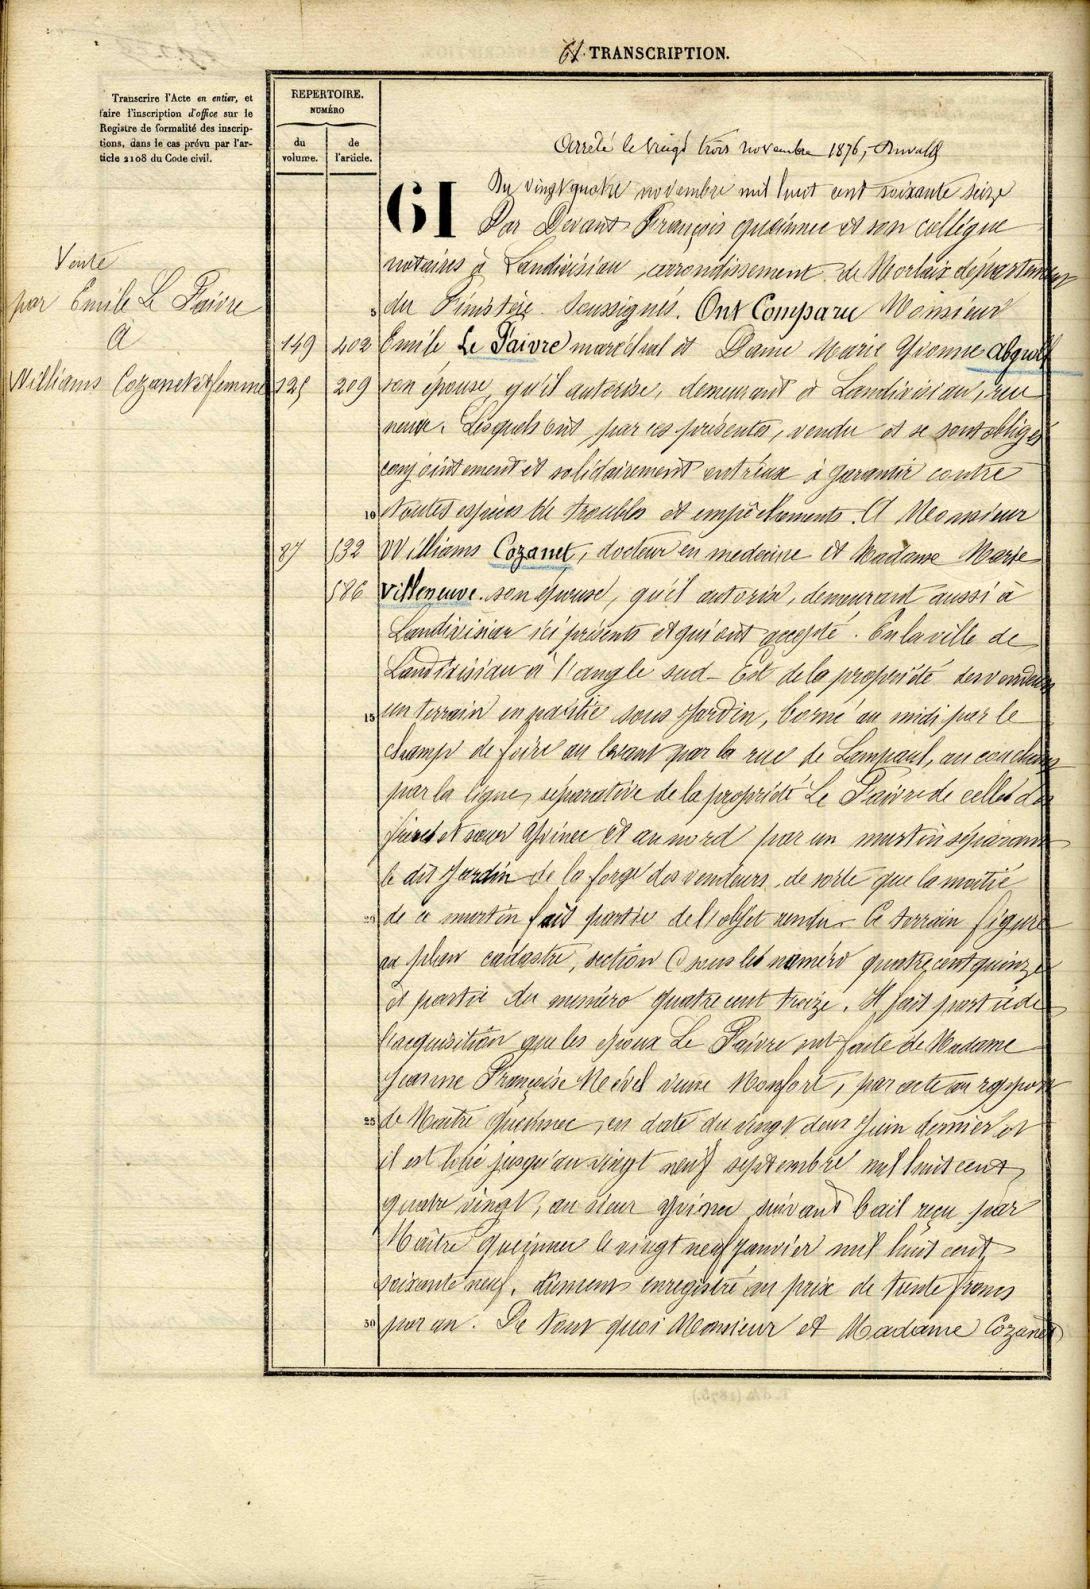 61. TRANSCRIPTION.
Transcrire l'Acte en entier, et
faire l'inscription d'office sur le
Registre de formalité des inscrip-
tions, dans le cas prévu par l'ar-
ticle 2108 du Code civil.
REPERTOIRE.
NUMÉRO
du
volume.
de
l'article.
Arrêté le vingt trois novembre 1876,
61
Du vingt quatre novembre mil huit cent soixante seize
Par Devant François Queinnec et son collègue
notaires à Landivisiau, arrondissement de Morlaix département
Vente
par Emile Le Faivre
A
Williams Cozanet & femme
5 du Finistère soussignés. Ont Comparu Monsieur
149 402 Emile Le Faivre maréchal et Dame Marie Yvonne Abgrall
125 209 son épouse, qu'il autorise, demeurant à Landivisiau, rue
neuve. Lesquels ont, par ces présentes, vendu et se sont obligés
conjointement et solidairement entr'eux à garantir contre
10 toutes espèces de troubles et empêchements. A Monsieur
87 532 Williams Cozanet, docteur en médecine et Madame Marie
586 Villeneuve son épouse, qu'il autorise, demeurant aussi à
Landivisiau ici présents et qui ont accepté. En la ville de
Landivisiau à l'angle sud-Est de la propriété des vendeurs
15 un terrain en partie sous Jardin, borné au midi par le
champ de foire au levant par la rue de Lampaul, au couchant
par la ligne séparative de la propriété Le Faivre de celles des
frères et sœur Yvinec et au nord par un murtin séparant
le dit Jardin de la forge des vendeurs, de sorte que la moitié
20 de ce murtin fait partie de l'objet vendu. Ce terrain figure
au plan cadastre, section C sous les numéro quatre cent quinze
et partie du numéro quatre cent treize. Il fait partie de
l'acquisition que les époux Le Faivre ont faite de Madame
Jeanne Françoise Mével veuve Monfort, par acte au rapport
25 de Maître Queinnec, en date du vingt deux Juin dernier et
il est loué jusqu'au vingt neuf septembre mil huit cent
quatre vingt, au sieur Yvinec suivant bail reçu par
Maître Queinnec le vingt neuf Janvier mil huit cent
soixante neuf, dûment enregistré au prix de trente francs
30 par an. De tout quoi Monsieur et Madame Cozanet